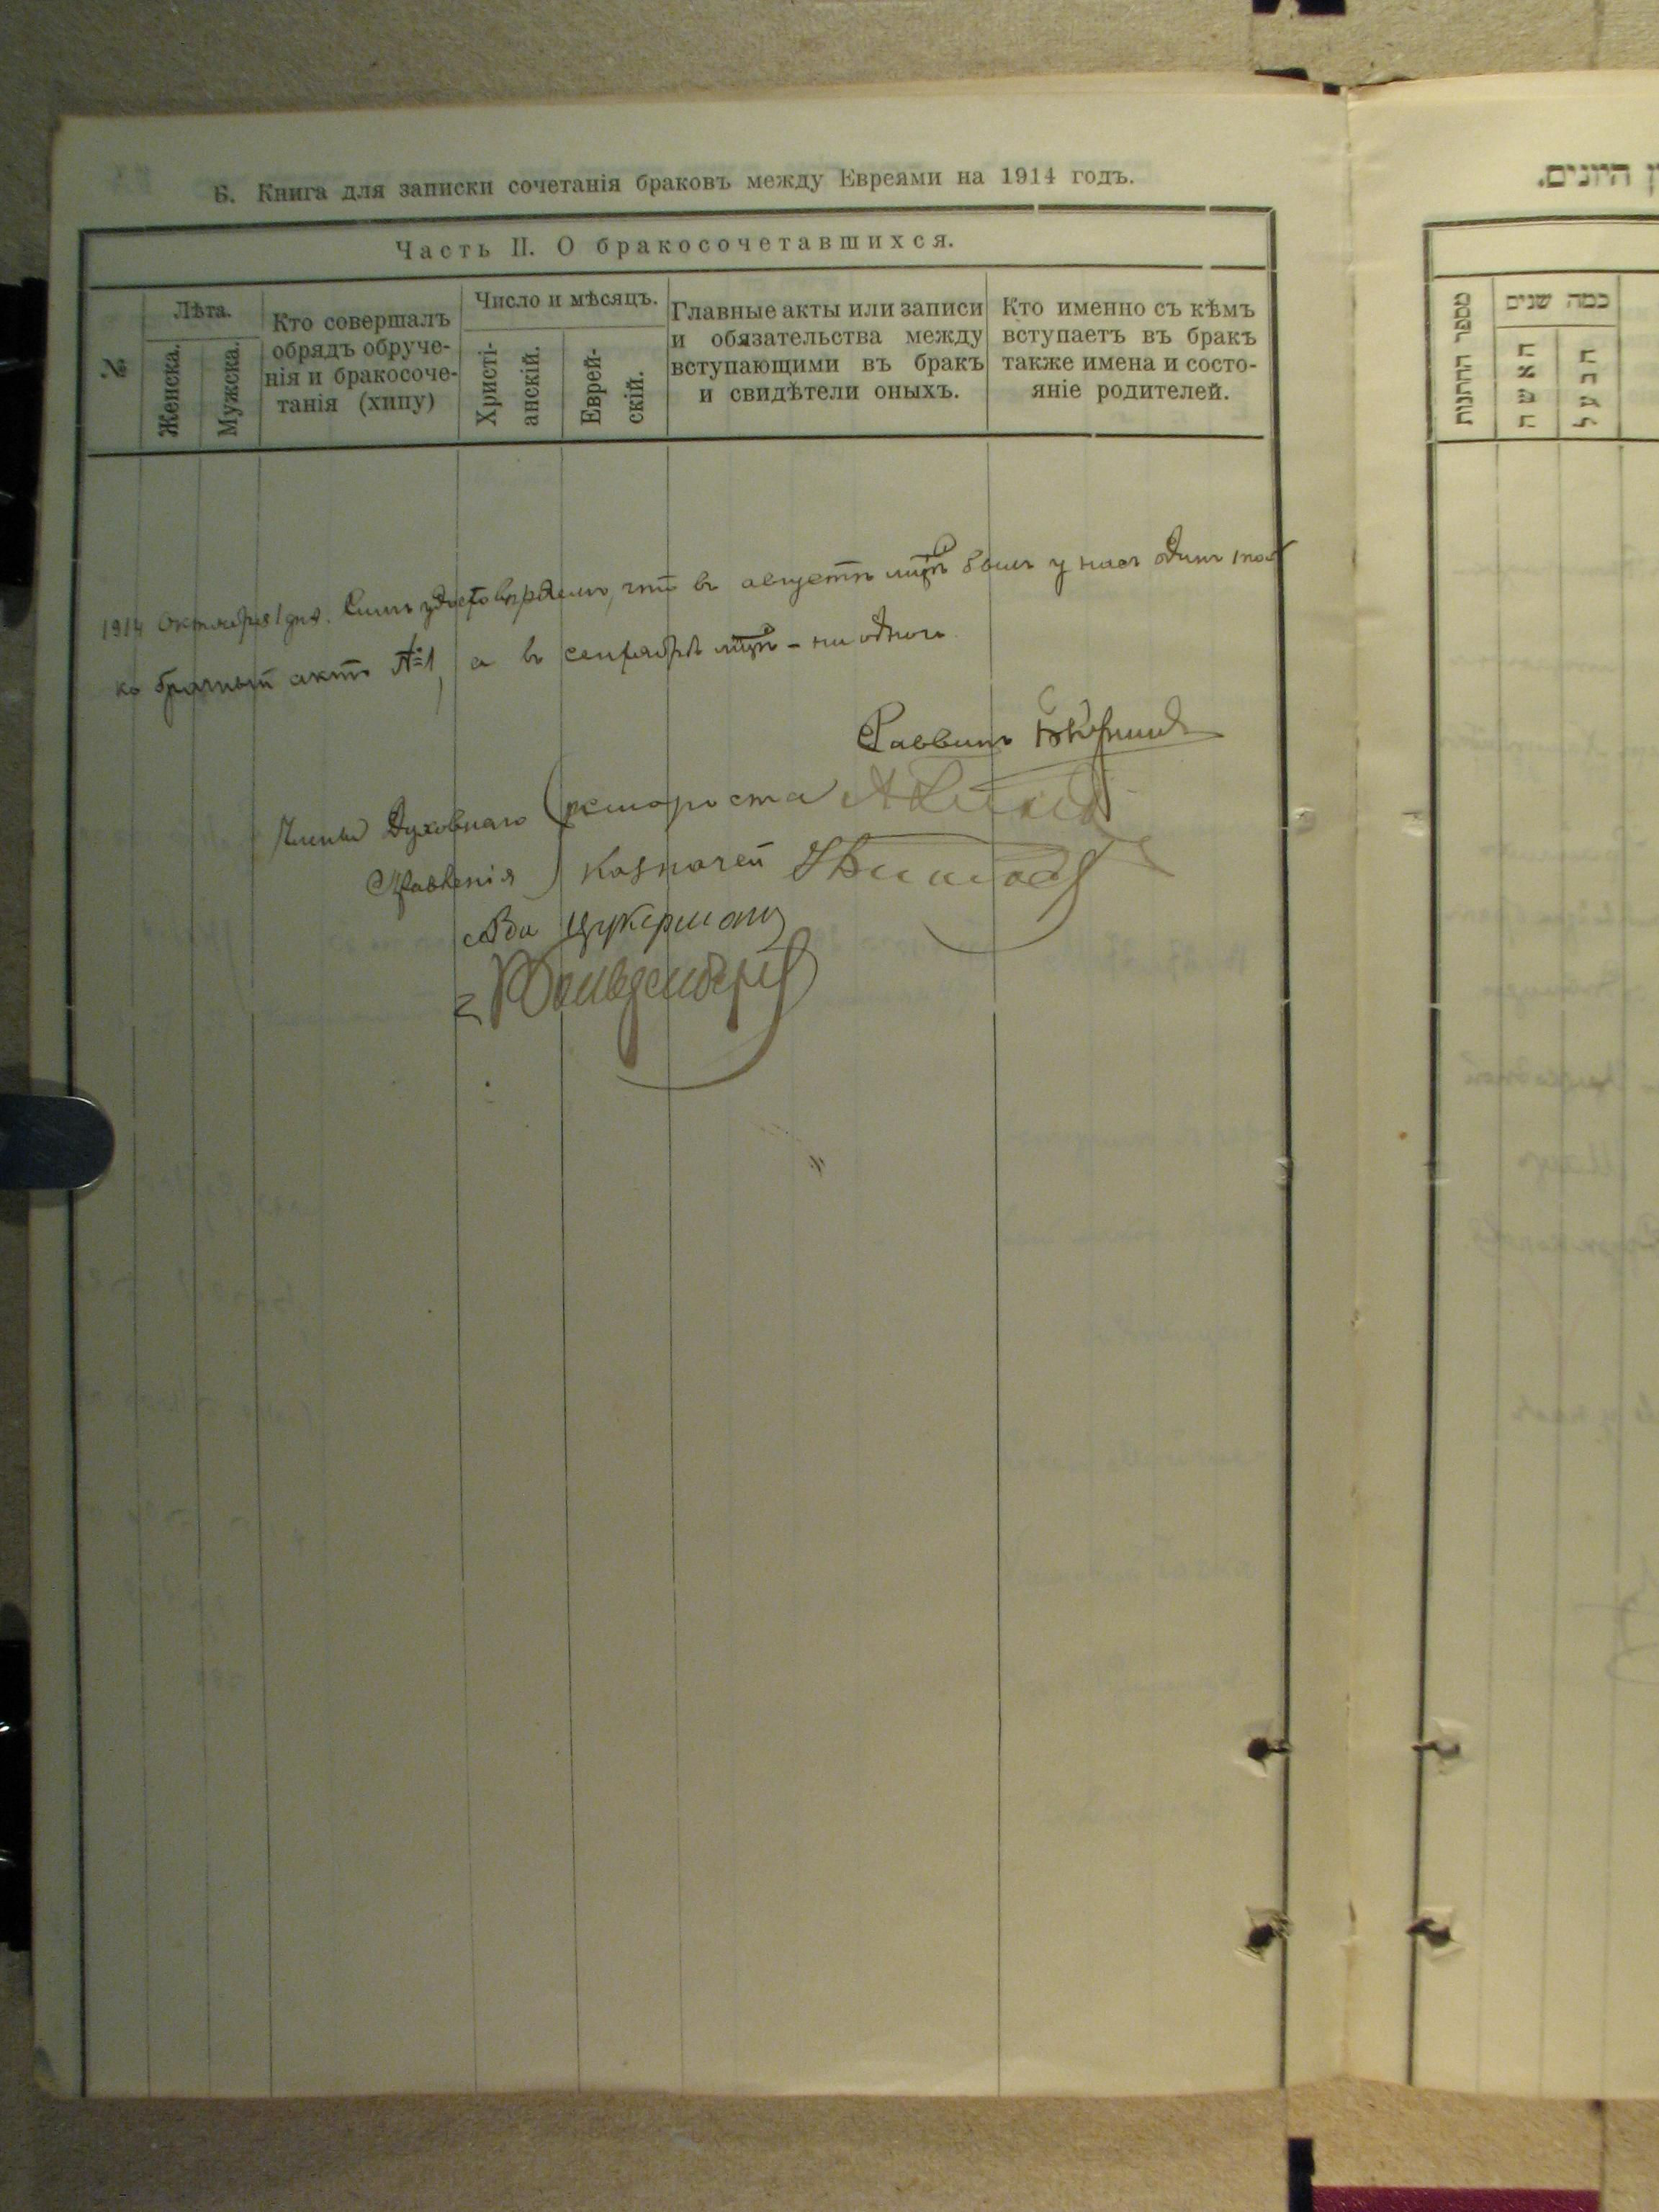 Б. Книга для записки сочетанія браковъ между Евреями на 1914 годъ.
Часть II. О бракосочетавшихся.
№
Лѣта.
Женска.
Мужска.
Кто совершалъ
обрядъ обруче-
нія и бракосоче-
танія (хипу)
Число и мѣсяцъ.
Христі-
анскій.
Еврей-
скій.
Главные акты или записи
и обязательства между
вступающими въ бракъ
и свидѣтели оныхъ.
Кто именно съ кѣмъ
вступаетъ въ бракъ
также имена и состо-
яніе родителей.
1914 Октября 1 дня. Симъ удостовѣряемъ, что въ августѣ мцѣ былъ у насъ одинъ толь
ко брачный актъ №1, а въ сентябрѣ мцѣ - ни одного.
Раввинъ
Члены Духовнаго
Правленія
староста
Казначей
Цукерманъ
ן היונים.
מספר החתונות
כמה שנים
האשה
הבעל